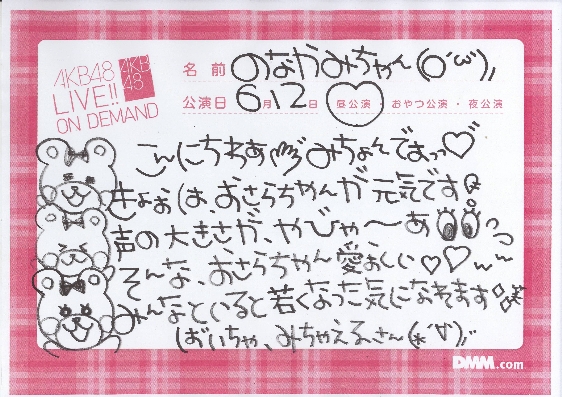 AKB48
LIVE!!
ON DEMAND
AKB
48
名前 のなかみちゃん(o´ω`)ﾉ
公演日 6月12日 昼公演 おやつ公演・夜公演
こんにちわあ みちょんですっ♡
きょおは、おさらちゃんが元気です
声の大きさが、やびゃ〜あ
そんな、おさらちゃん愛おしい♡♡
みんなといると若くなった気になれます
ばいちゃ、みちゃえるさん(*´∀`)ﾉ
DMM.com